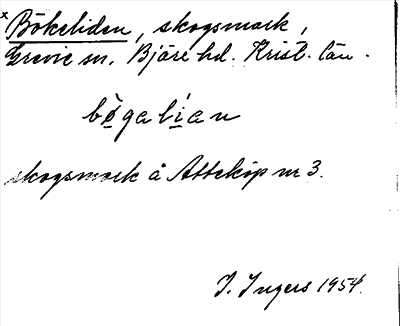 x Bökeliden, skogsmark,
Grevie sn. Bjäre hd. Krist. län.
bögalian
skogsmark å Atteköp nr 3.
I. Ingers 1954.